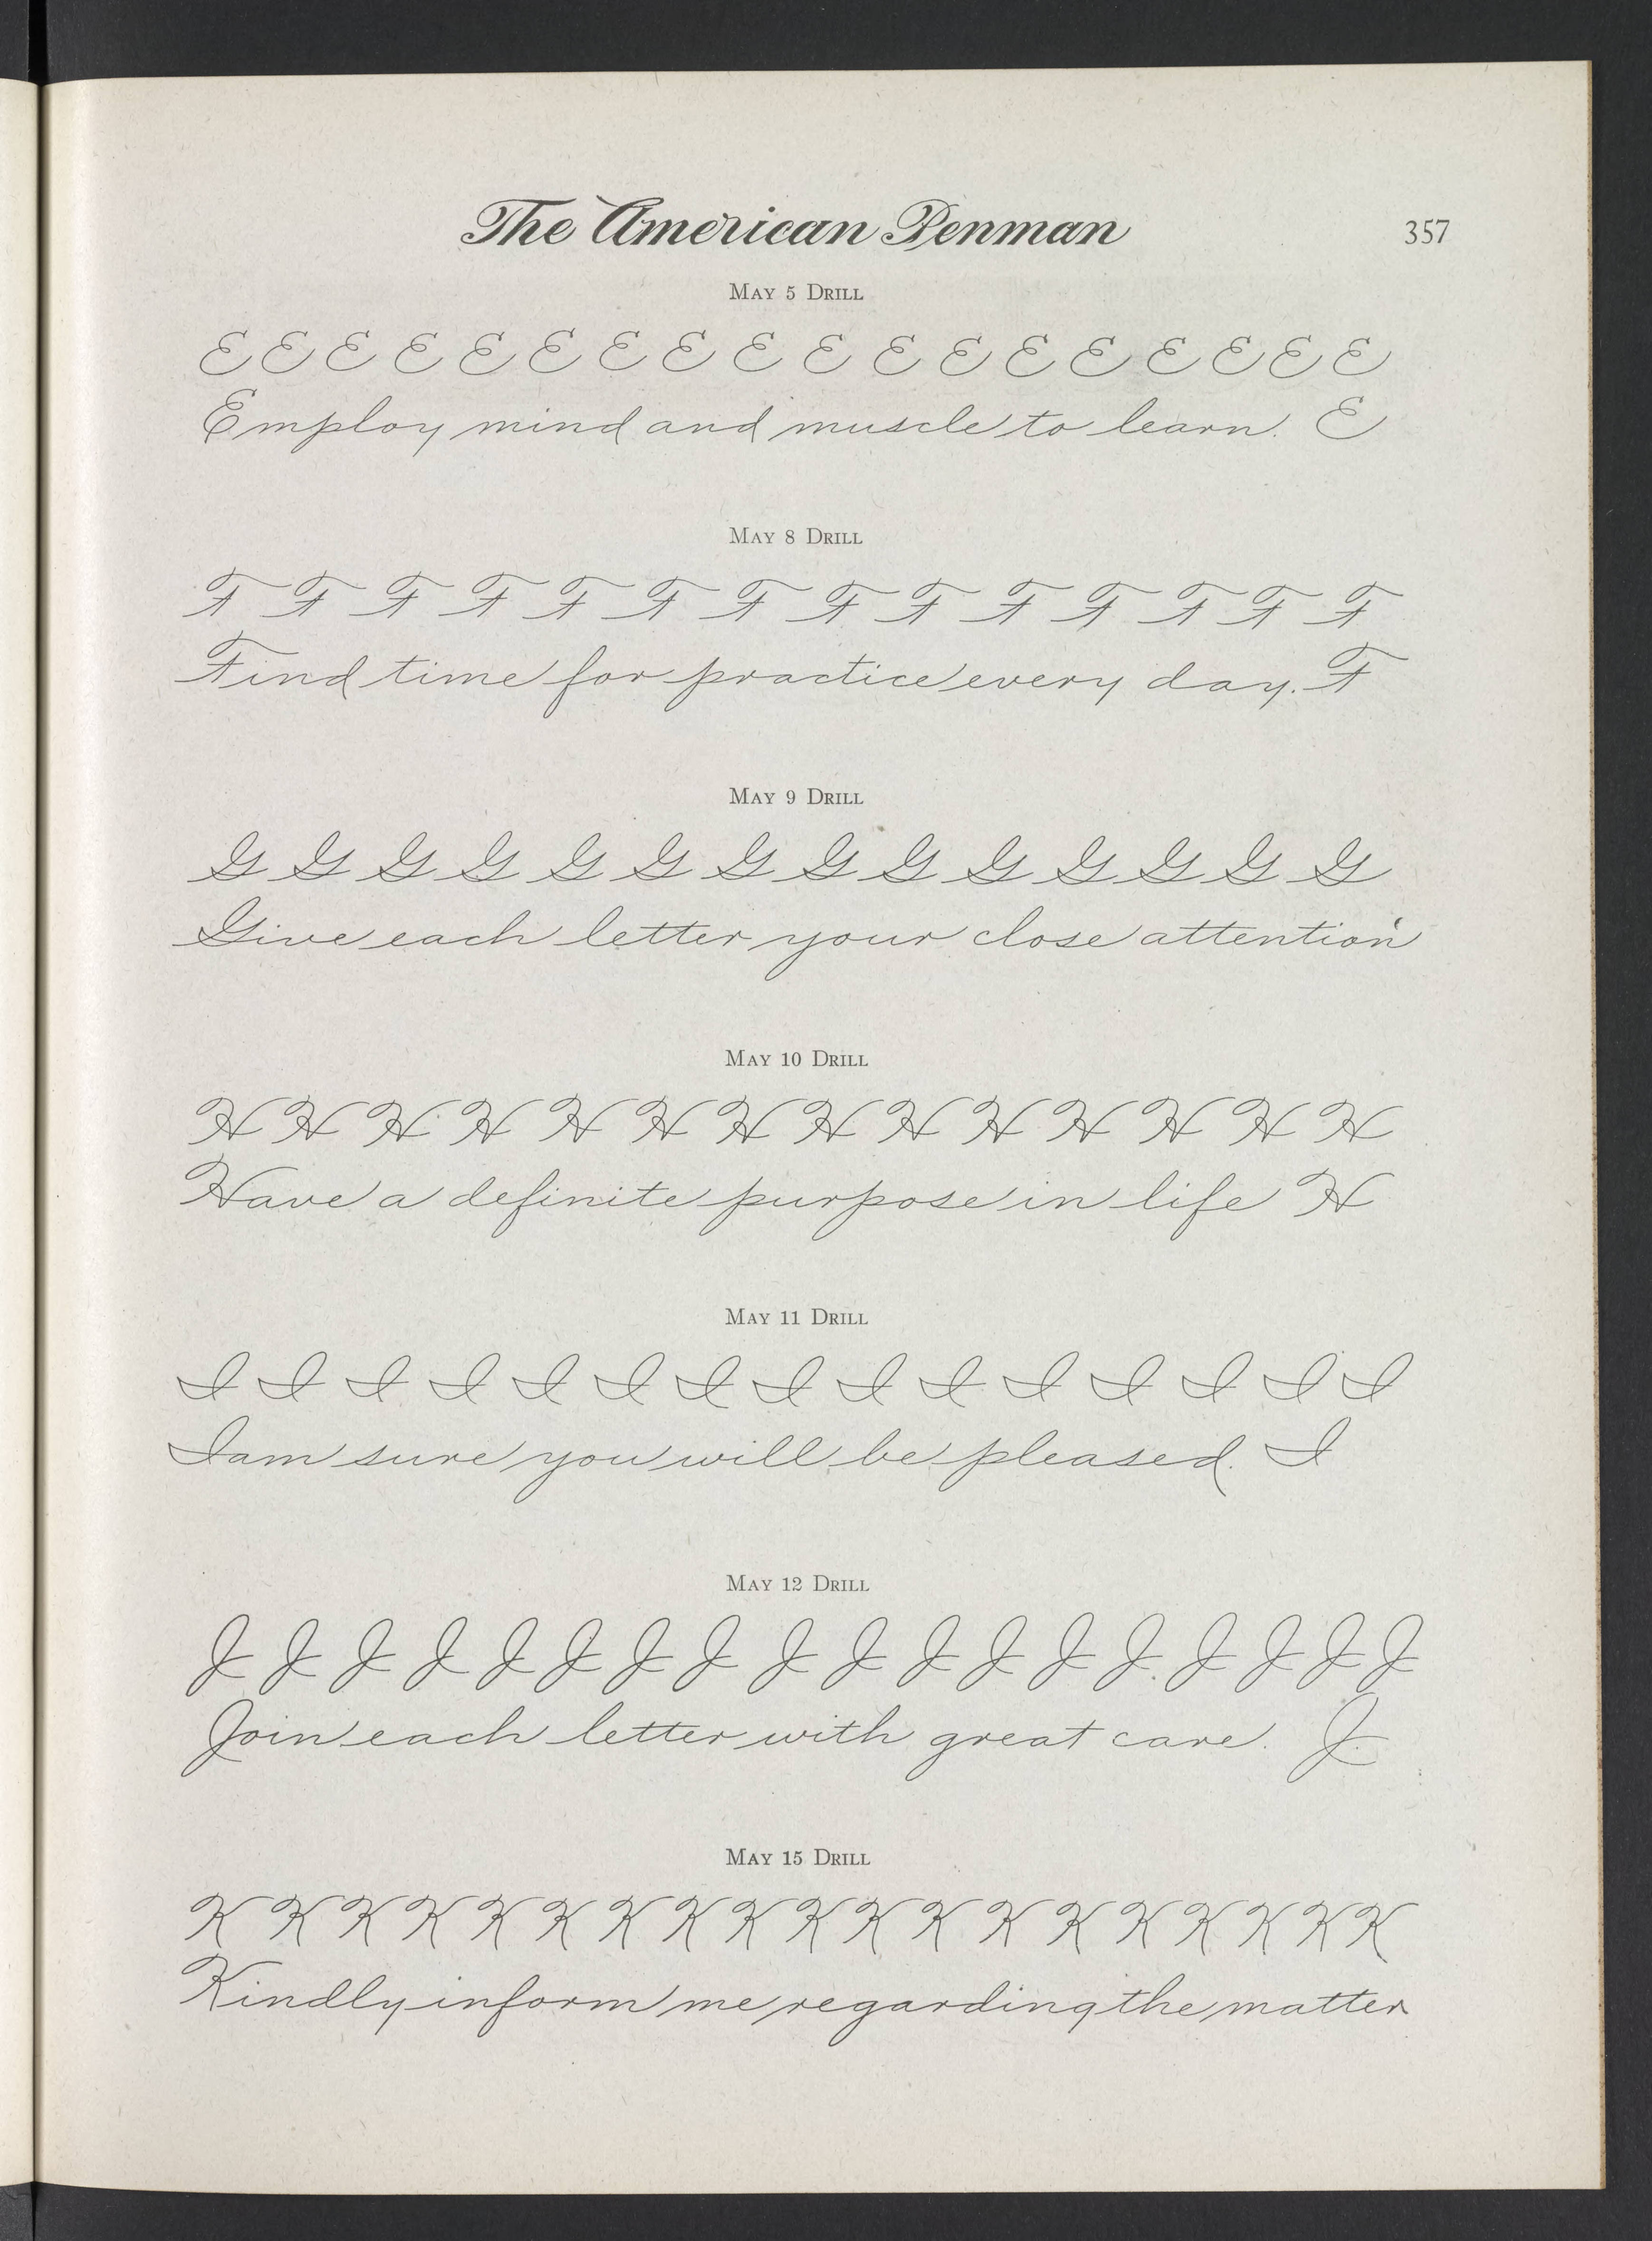 The American Penman 357
May 5 Drill
E E E E E E E E E E E E E E E E E E
Employ mind and muscle to learn. E
May 8 Drill
F F F F F F F F F F F F F F
Find time for practice every day. F
May 9 Drill
G G G G G G G G G G G G G G
Give each letter your close attention
May 10 Drill
H H H H H H H H H H H H H H
Have a definite purpose in life H
May 11 Drill
I I I I I I I I I I I I I I I
I am sure you will be pleased. I
May 12 Drill
J J J J J J J J J J J J J J J J J J
Join each letter with great care. J
May 15 Drill
K K K K K K K K K K K K K K K K K K K
Kindly inform me regarding the matter